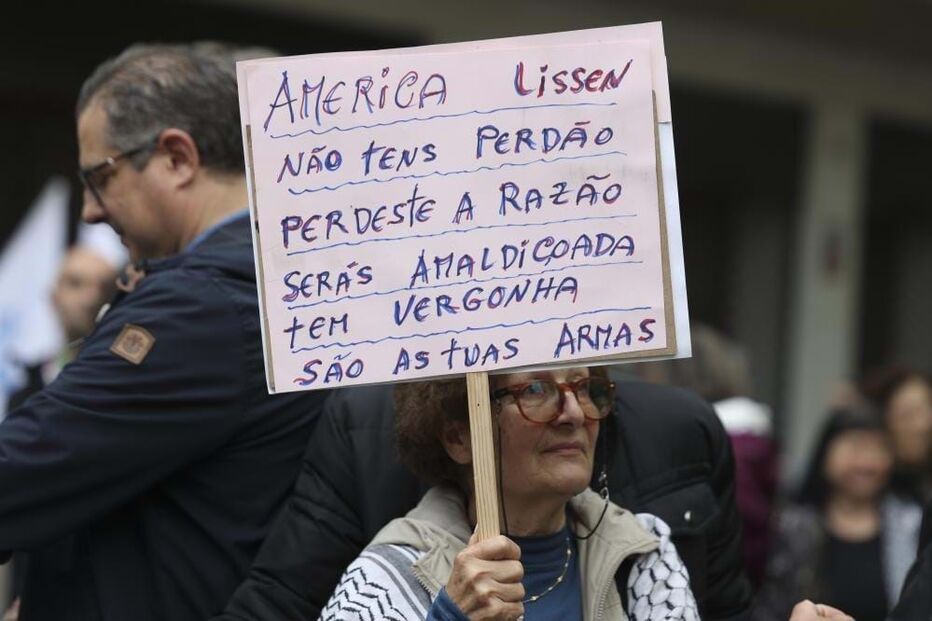 AMERICA LISSEN
NÃO TENS PERDÃO
PERDESTE A RAZÃO
SERÁS AMALDIÇOADA
TEM VERGONHA
SÃO AS TUAS ARMAS